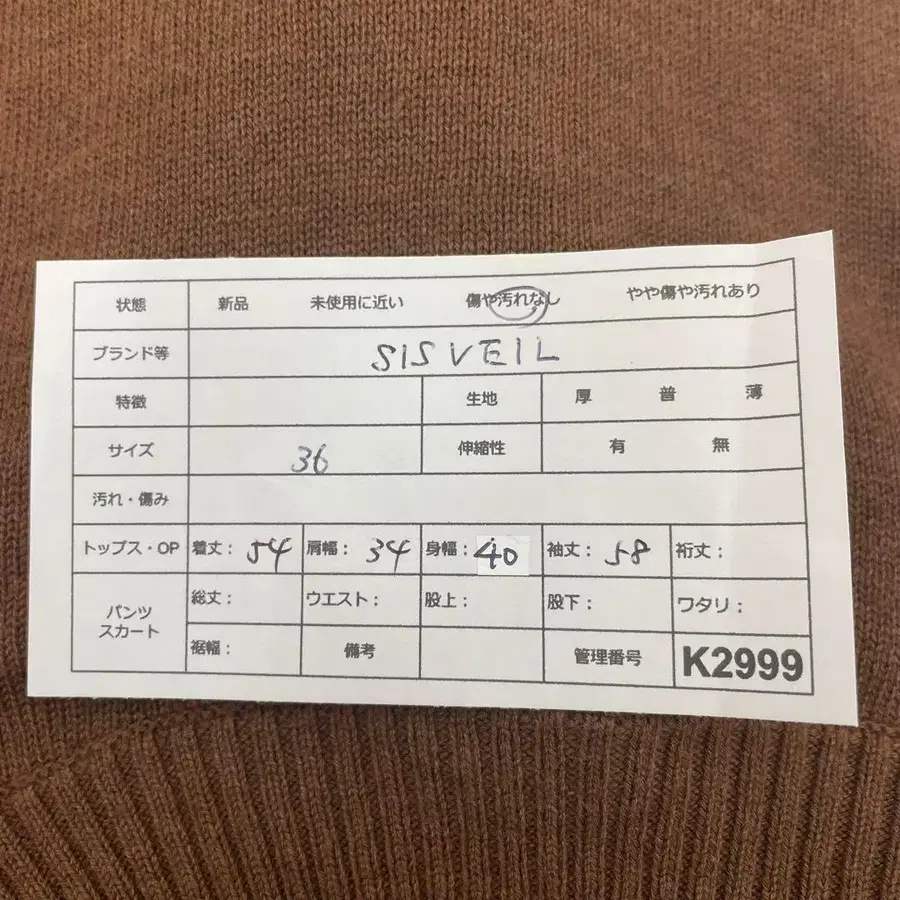 状態 新品 未使用に近い 傷や汚れなし やや傷や汚れあり
ブランド等 SISVEIL
特徴 生地 厚 普 薄
サイズ 36 伸縮性 有 無
汚れ・傷み
トップス・OP 着丈: 54 肩幅: 34 身幅: 40 袖丈: 58 裄丈:
パンツ スカート 総丈: ウエスト: 股上: 股下: ワタリ:
裾幅: 備考 管理番号 K2999